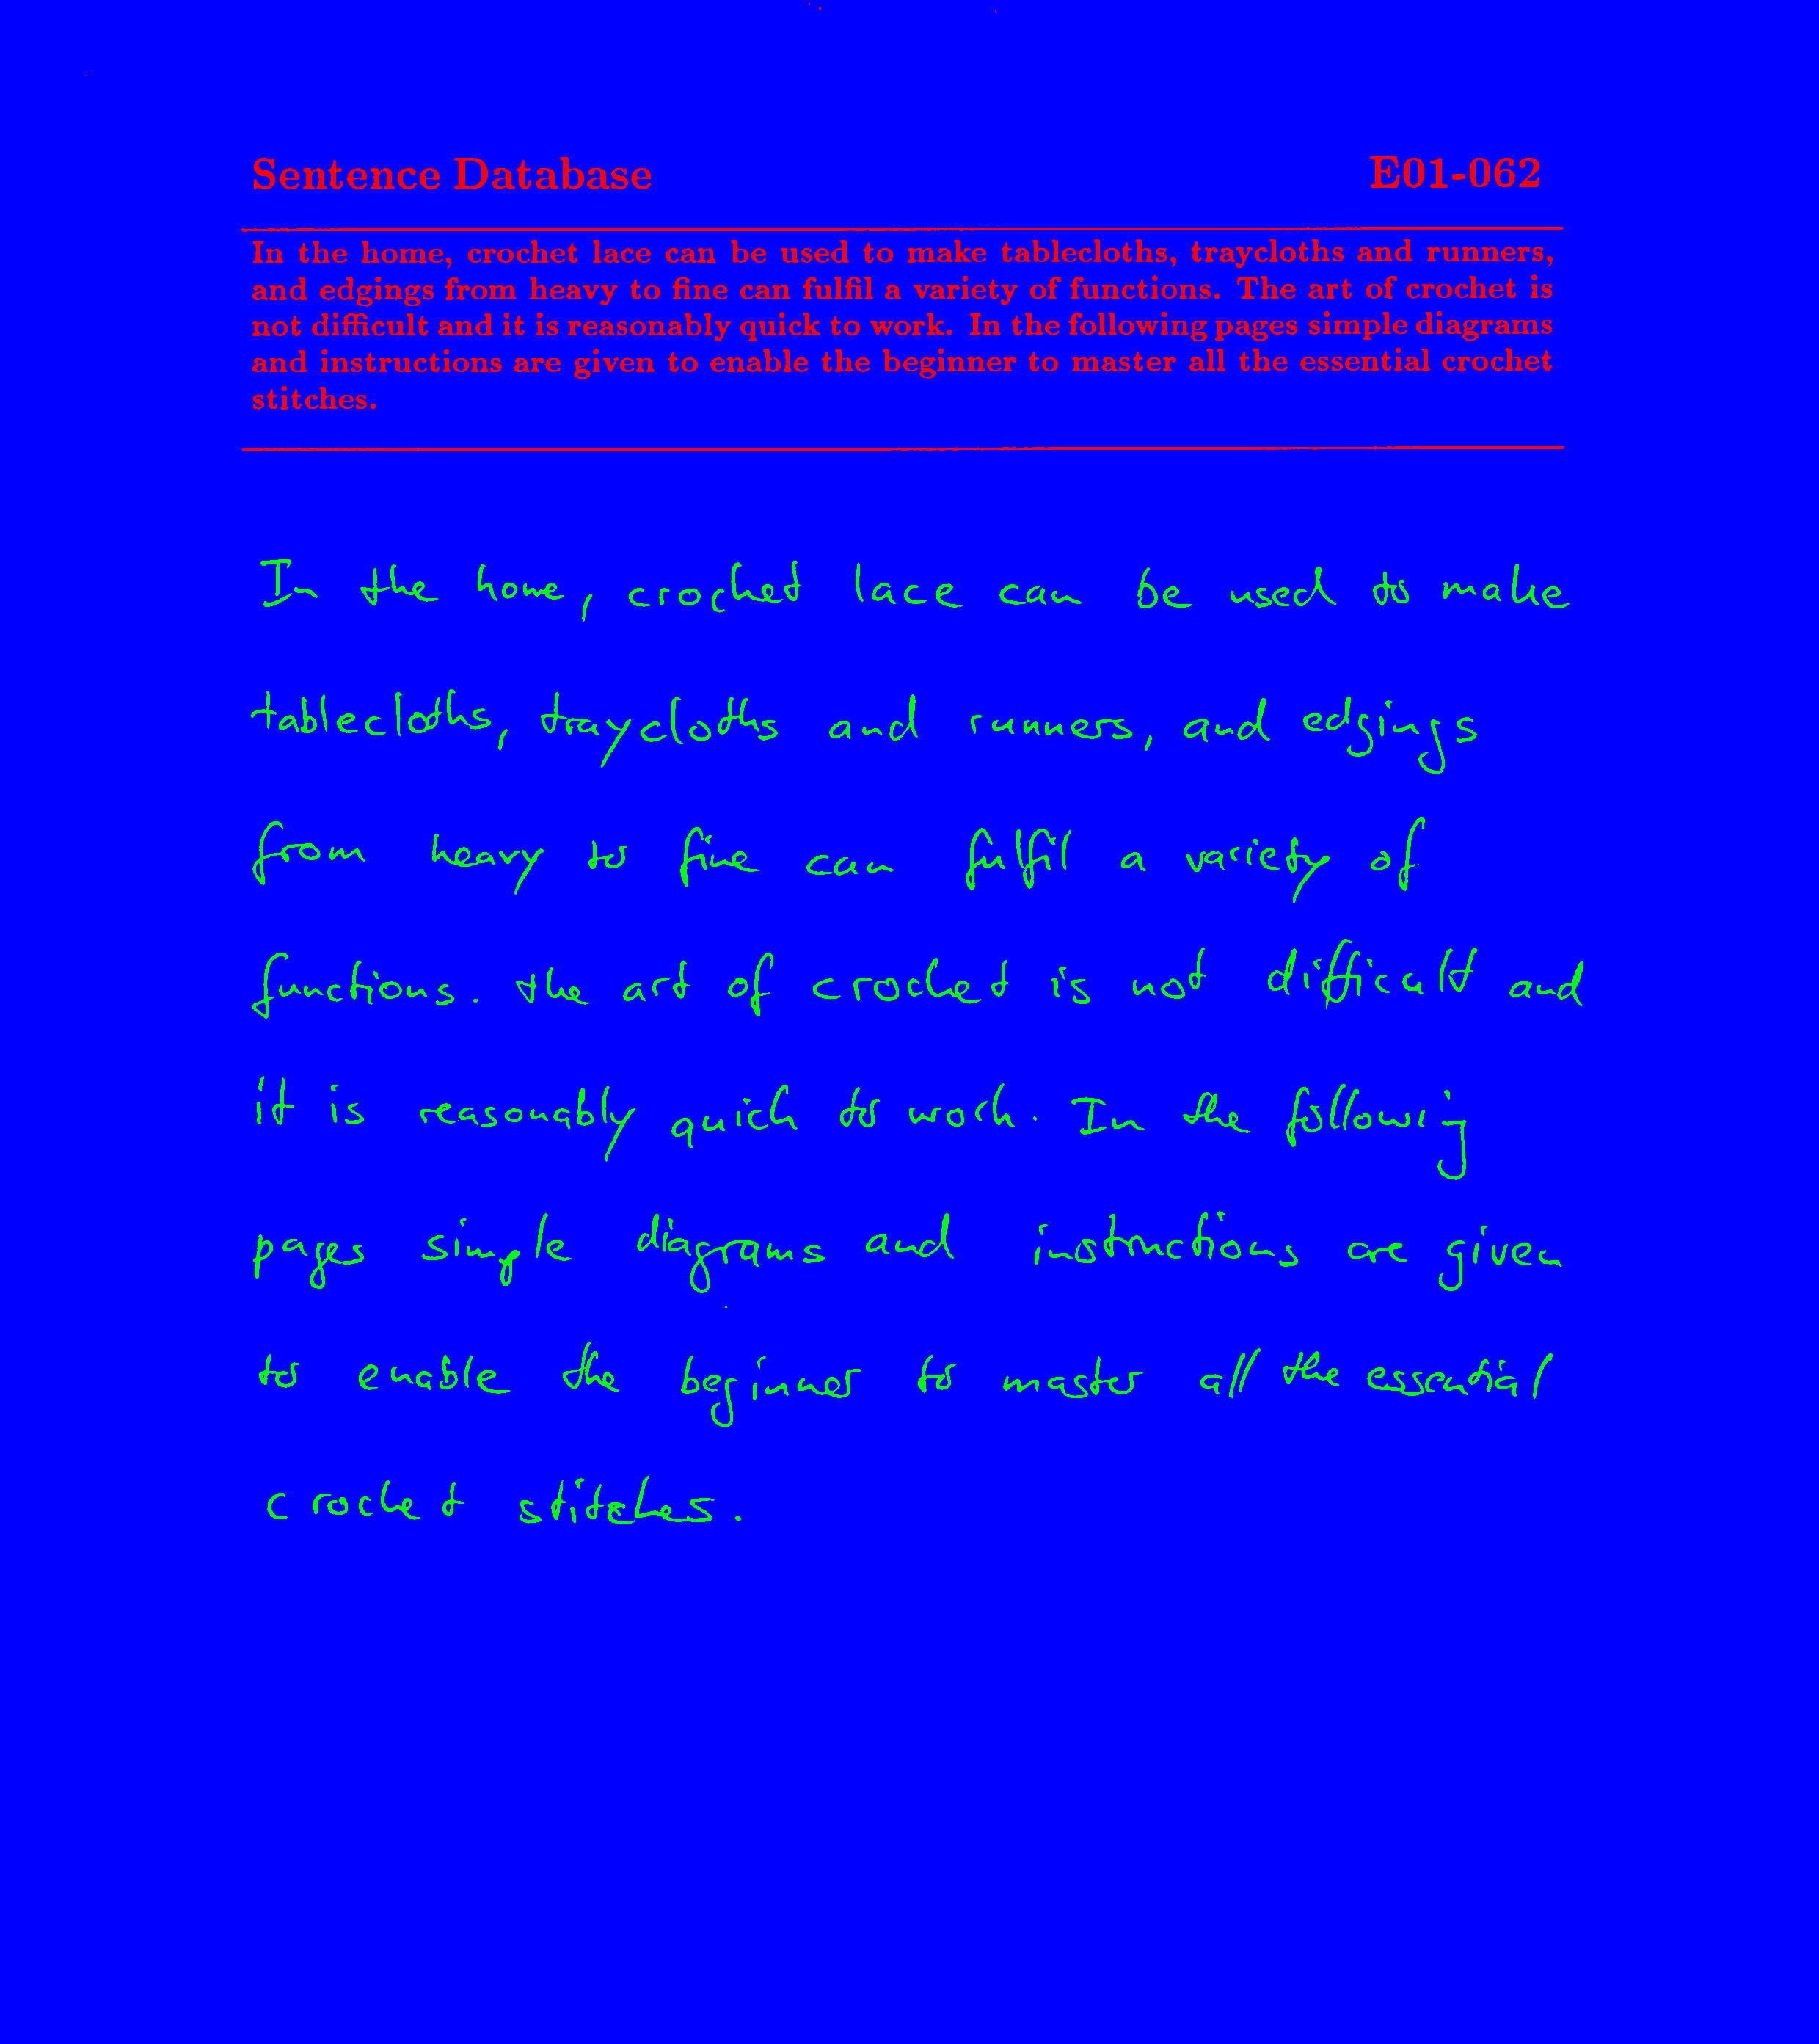 Sentence Database E01-062
In the home, crochet lace can be used to make tablecloths, traycloths and runners,
and edgings from heavy to fine can fulfil a variety of functions. The art of crochet is
not difficult and it is reasonably quick to work. In the following pages simple diagrams
and instructions are given to enable the beginner to master all the essential crochet
stitches.
In the home, crochet lace can be used to make
tablecloths, traycloths and runners, and edgings
from heavy to fine can fulfil a variety of
functions. the art of crochet is not difficult and
it is reasonably quick to work. In the following
pages simple diagrams and instructions are given
to enable the beginner to master all the essential
crochet stitches.